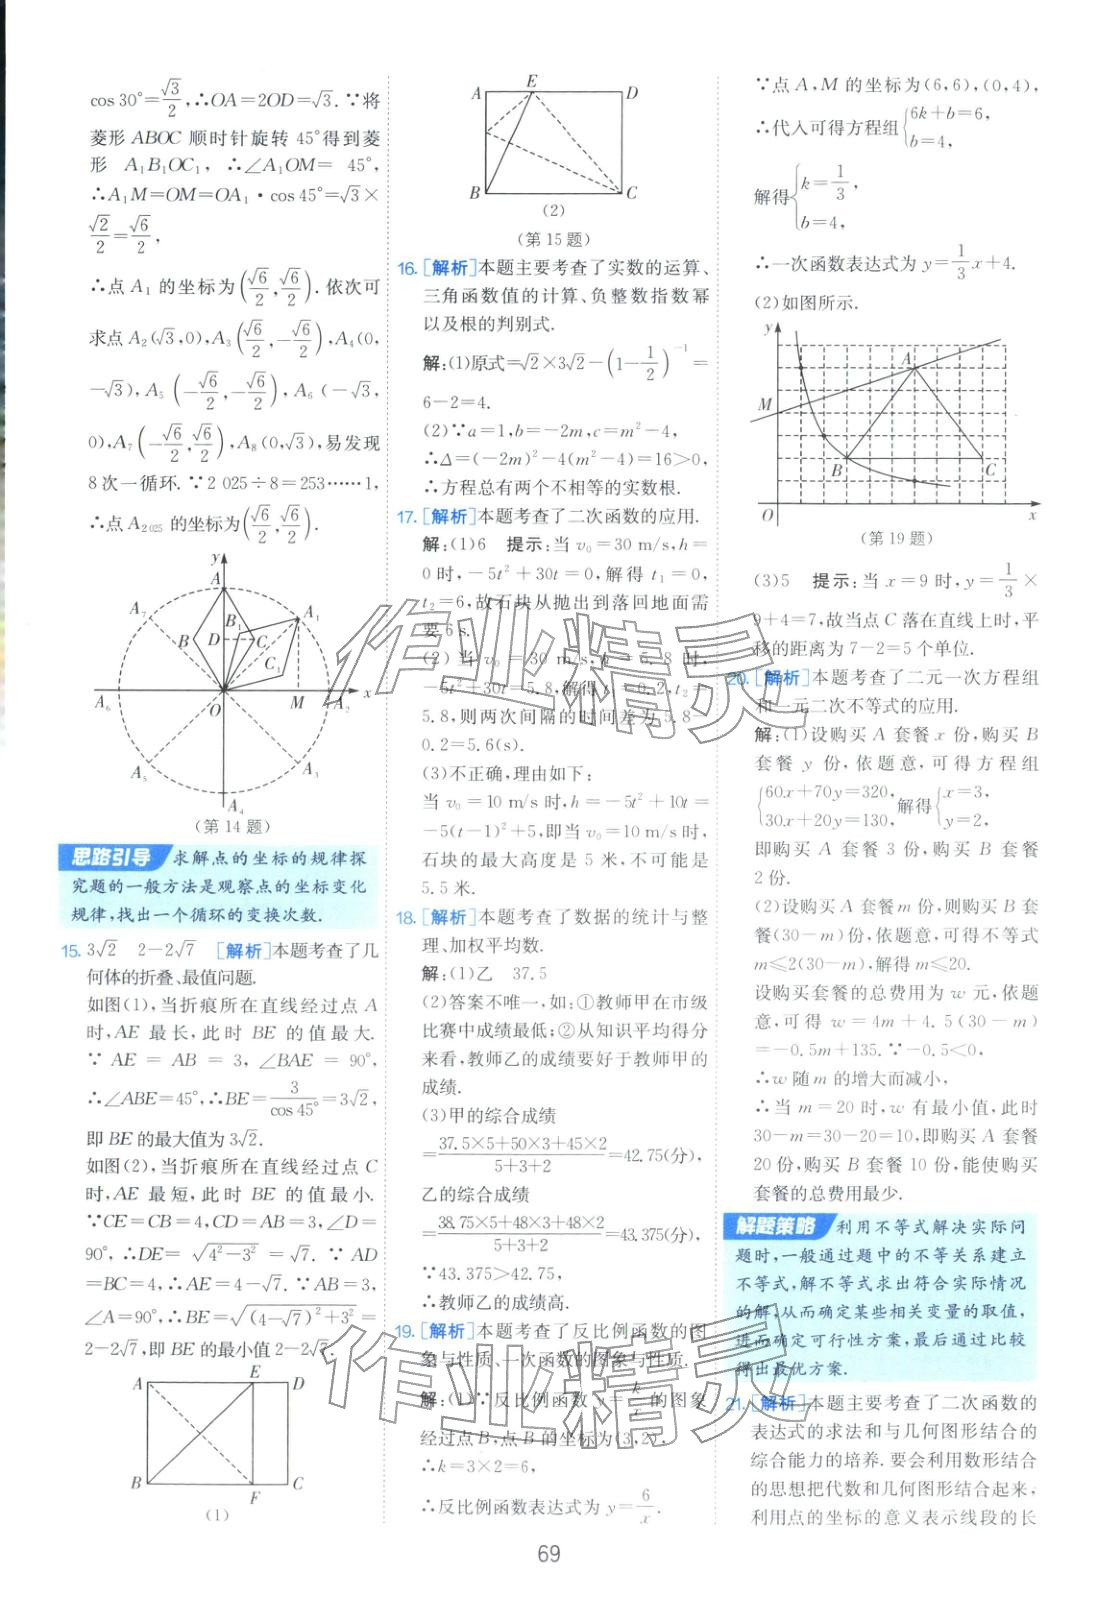 cos 30°=√3/2,∴OA=2OD=√3.∵将
菱形 ABOC 顺时针旋转 45°得到菱
形 A₁B₁OC₁, ∴∠A₁OM= 45°,
∴A₁M=OM=OA₁·cos 45°=√3×
√2/2=√6/2,
∴点 A₁ 的坐标为(√6/2,√6/2).依次可
求点 A₂(√3,0),A₃(√6/2,-√6/2),A₄(0,
-√3),A₅(-√6/2,-√6/2),A₆(-√3,
0),A₇(-√6/2,√6/2),A₈(0,√3),易发现
8 次一循环.∵2 025÷8=253……1,
∴点 A₂₀₂₅ 的坐标为(√6/2,√6/2).
y
A
A₇
A₁
B
B₁
D
C
C₁
A₆
O
M
A₂
x
A₅
A₃
A₄
(第 14 题)
思路引导 求解点的坐标的规律探
究题的一般方法是观察点的坐标变化
规律,找出一个循环的变换次数.
15. 3√2 2-2√7 [解析]本题考查了几
何体的折叠、最值问题.
如图(1),当折痕所在直线经过点 A
时,AE 最长,此时 BE 的值最大.
∵ AE = AB = 3, ∠BAE = 90°,
∴∠ABE=45°,∴BE=3/cos 45°=3√2,
即 BE 的最大值为 3√2.
如图(2),当折痕所在直线经过点 C
时,AE 最短,此时 BE 的值最小.
∵CE=CB=4,CD=AB=3,∠D=
90°,∴DE= √(4²-3²) =√7. ∵ AD
=BC=4,∴AE=4-√7.∵AB=3,
∠A=90°,∴BE=√((4-√7)²+3²)=
2-2√7,即 BE 的最小值 2-2√7.
A
E
D
B
F
C
(1)
A
E
D
B
C
(2)
(第 15 题)
16. [解析]本题主要考查了实数的运算、
三角函数值的计算、负整数指数幂
以及根的判别式.
解:(1)原式=√2×3√2-(1-1/2)⁻¹=
6-2=4.
(2)∵a=1,b=-2m,c=m²-4,
∴Δ=(-2m)²-4(m²-4)=16>0,
∴方程总有两个不相等的实数根.
17. [解析]本题考查了二次函数的应用.
解:(1)6 提示:当 v₀=30 m/s,h=
0 时,-5t²+30t=0,解得 t₁=0,
t₂=6,故石块从抛出到落回地面需
要 6 s.
(2) 当 v₀ = 30 m/s, h = 5.8 时,
-5t²+30t=5.8,解得 t₁=0.2,t₂=
5.8,则两次间隔的时间差为 5.8-
0.2=5.6(s).
(3)不正确,理由如下:
当 v₀=10 m/s 时,h=-5t²+10t=
-5(t-1)²+5,即当 v₀=10 m/s 时,
石块的最大高度是 5 米,不可能是
5.5 米.
18. [解析]本题考查了数据的统计与整
理、加权平均数.
解:(1)乙 37.5
(2)答案不唯一,如:①教师甲在市级
比赛中成绩最低;②从知识平均得分
来看,教师乙的成绩要好于教师甲的
成绩.
(3)甲的综合成绩
=(37.5×5+50×3+45×2)/(5+3+2)=42.75(分),
乙的综合成绩
=(38.75×5+48×3+48×2)/(5+3+2)=43.375(分),
∵43.375>42.75,
∴教师乙的成绩高.
19. [解析]本题考查了反比例函数的图
象与性质、一次函数的图象与性质.
解:(1)∵反比例函数 y=k/x 的图象
经过点 B,点 B 的坐标为(3,2),
∴k=3×2=6,
∴反比例函数表达式为 y=6/x.
∵点 A,M 的坐标为(6,6),(0,4),
∴代入可得方程组{6k+b=6,
b=4,
解得{k=1/3,
b=4,
∴一次函数表达式为 y=1/3x+4.
(2)如图所示.
y
A
M
B
C
O
x
(第 19 题)
(3)5 提示:当 x=9 时,y=1/3×
9+4=7,故当点 C 落在直线上时,平
移的距离为 7-2=5 个单位.
20. [解析]本题考查了二元一次方程组
和一元二次不等式的应用.
解:(1)设购买 A 套餐 x 份,购买 B
套餐 y 份,依题意,可得方程组
{60x+70y=320, 解得{x=3,
30x+20y=130, y=2,
即购买 A 套餐 3 份,购买 B 套餐
2 份.
(2)设购买 A 套餐 m 份,则购买 B 套
餐(30-m)份,依题意,可得不等式
m≤2(30-m),解得 m≤20.
设购买套餐的总费用为 w 元,依题
意,可得 w=4m+4.5(30-m)
=-0.5m+135.∵-0.5<0,
∴w 随 m 的增大而减小,
∴当 m=20 时,w 有最小值,此时
30-m=30-20=10,即购买 A 套餐
20 份,购买 B 套餐 10 份,能使购买
套餐的总费用最少.
解题策略 利用不等式解决实际问
题时,一般通过题中的不等关系建立
不等式,解不等式求出符合实际情况
的解,从而确定某些相关变量的取值,
进而确定可行性方案,最后通过比较
得出最优方案.
21. [解析]本题主要考查了二次函数的
表达式的求法和与几何图形结合的
综合能力的培养.要会利用数形结合
的思想把代数和几何图形结合起来,
利用点的坐标的意义表示线段的长
作业精灵
作业精灵
69